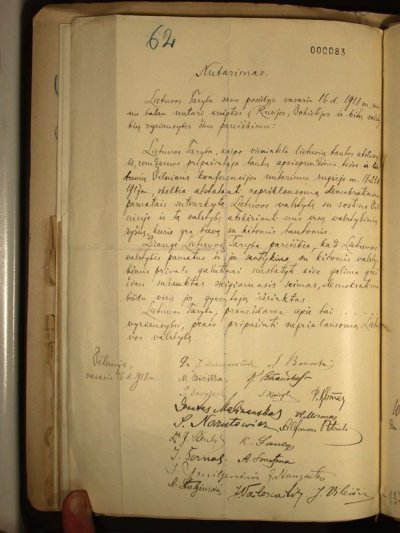 62
000083
Nutarimas.
Lietuvos Taryba savo posėdyje vasario 16 d. 1918 m. vienu
balsu nutarė kreiptis į Rusijos, Vokietijos ir kitų valstybių
vyriausybes šiuo pareiškimu:
Lietuvos Taryba, kaipo vienintelė lietuvių tautos atstovybė,
remdamos pripažintąja tautų apsisprendimo teise ir lietuvių
Vilniaus konferencijos nutarimu rugsėjo m. 18-23 d.
1917 m., skelbia atstatanti nepriklausomą demokratiniais
pamatais sutvarkytą Lietuvos valstybę su sostine Vilniuje
ir tą valstybę atskirianti nuo visų valstybinių
ryšių, kurie yra buvę su kitomis tautomis.
Drauge Lietuvos Taryba pareiškia, kad Lietuvos
valstybės pamatus ir jos santykius su kitomis valstybėmis
privalo galutinai nustatyti kiek galima greičiau
sušauktas steigiamasis seimas, demokratiniu
būdu visų jos gyventojų išrinktas.
Lietuvos Taryba, pranešdama apie tai ..........
vyriausybei, prašo pripažinti nepriklausomą Lietuvos
valstybę.
Vilniuje,
vasario 16 d. 1918 m.
Dr. J. Basanavičius
M. Biržiška
K. Bizauskas
P. Klimas
Donatas Malinauskas
S. Narutowicz
Alfonsas Petrulis
K. Šaulys
J. Šernas
A. Smetona
J. Smilgevičius
A. Stulginskis
J. Vailokaitis
J. Vileišis